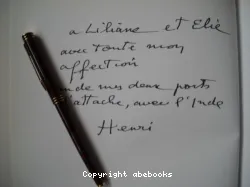 a Liliane et Elie
avec toute mon
affection
de mes deux ports
attache, avec l'Inde
Henri
Copyright abebooks